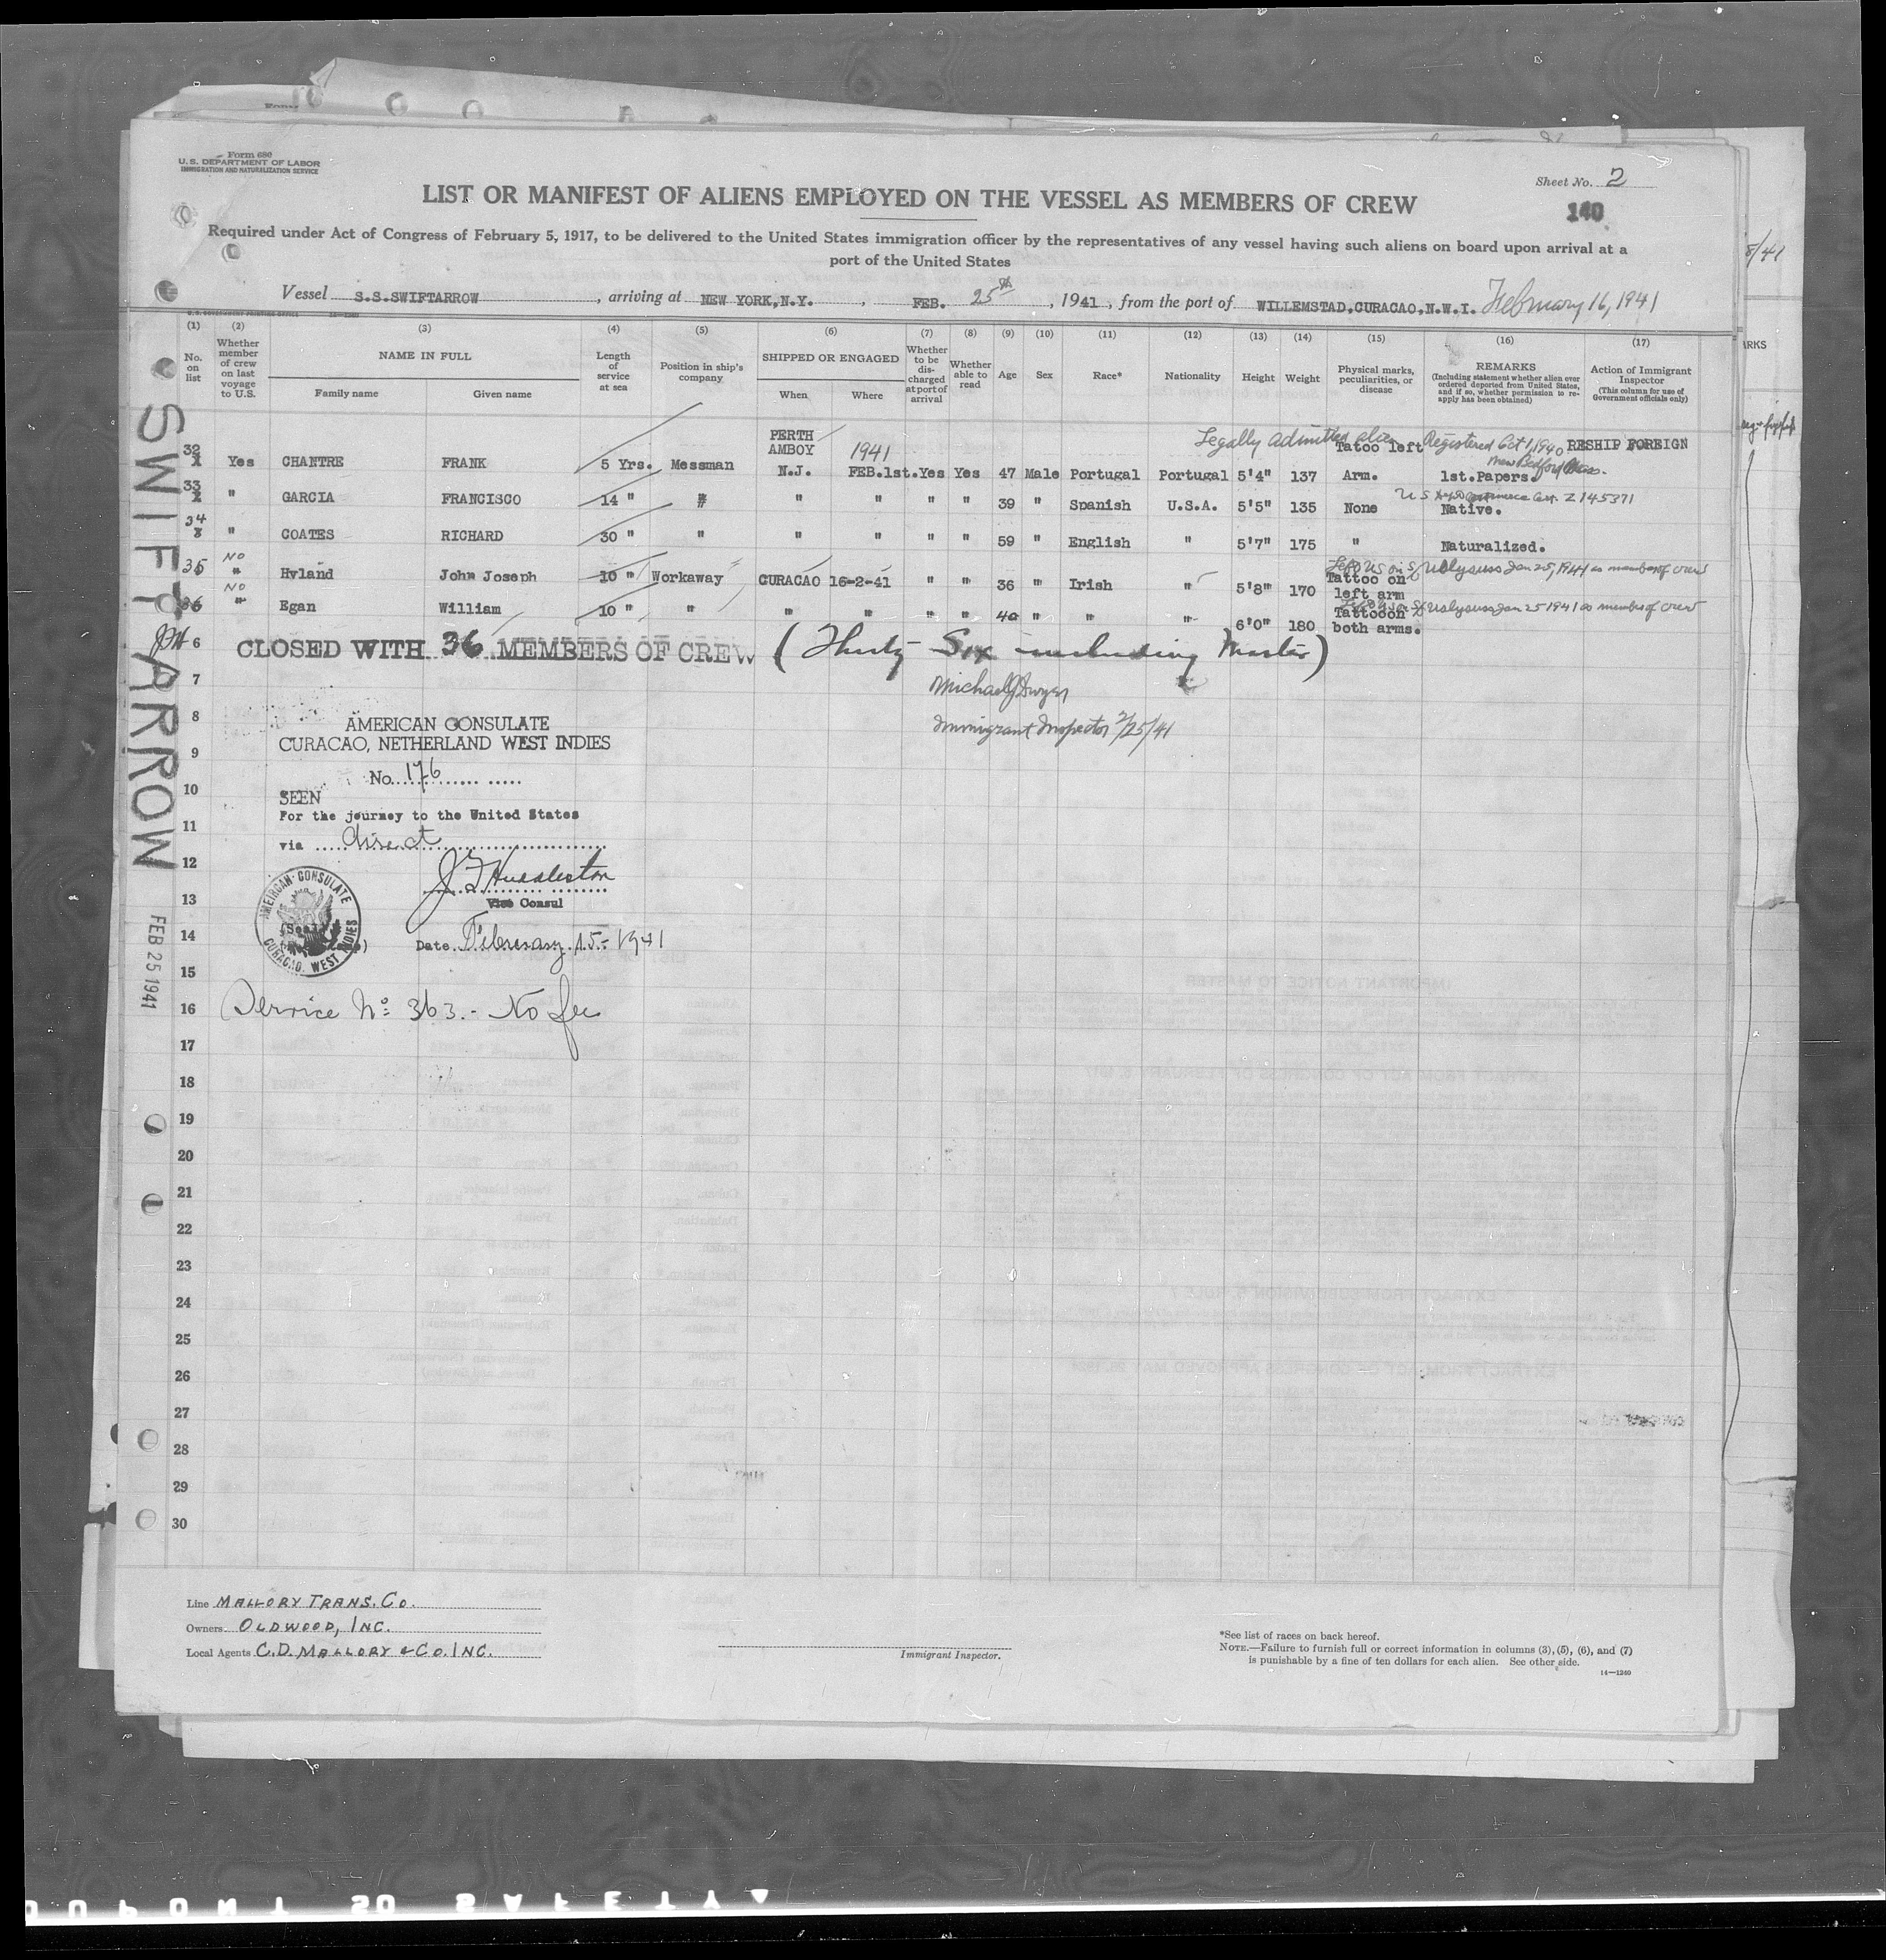 Form 680
U. S. DEPARTMENT OF LABOR
IMMIGRATION AND NATURALIZATION SERVICE
Sheet No. 2
LIST OR MANIFEST OF ALIENS EMPLOYED ON THE VESSEL AS MEMBERS OF CREW
140
Required under Act of Congress of February 5, 1917, to be delivered to the United States immigration officer by the representatives of any vessel having such aliens on board upon arrival at a
port of the United States
8/41
Vessel S.S.SWIFTARROW, arriving at NEW YORK,N.Y., FEB. 25th, 1941, from the port of WILLEMSTAD.CURACAO.N.W.I. February 16, 1941
(1) (2) (3) (4) (5) (6) (7) (8) (9) (10) (11) (12) (13) (14) (15) (16) (17)
No. on list
Whether member of crew on last voyage to U.S.
NAME IN FULL
Family name
Given name
Length of service at sea
Position in ship's company
SHIPPED OR ENGAGED
When
Where
Whether to be discharged at port of arrival
Whether able to read
Age
Sex
Race*
Nationality
Height
Weight
Physical marks, peculiarities, or disease
REMARKS
(Including statement whether alien ever ordered deported from United States, and if so, whether permission to reapply has been obtained)
Action of Immigrant Inspector
(This column for use of Government officials only)
ARKS
SWIFTARROW
FEB 25 1941
PERTH
AMBOY 1941 Legally admitted alien Tatoo left Registered Oct 1, 1940 RESHIP FOREIGN
New Bedford Mass.
32 Yes CHANTRE FRANK 5 Yrs. Messman N.J. FEB.1st. Yes Yes 47 Male Portugal Portugal 5'4" 137 Arm. 1st.Papers.
33 " GARCIA FRANCISCO 14 " " " " " " 39 " Spanish U.S.A. 5'5" 135 None Native.
Z 145371
34 " COATES RICHARD 30 " " " " " " 59 " English " 5'7" 175 " Naturalized.
35 No " Hyland John Joseph 10 " Workaway CURACAO 16-2-41 " " 36 " Irish " 5'8" 170 Tattoo on left arm
Left US on SS Ulysuss Jan 25, 1941 as member of crew
36 No " Egan William 10 " " " " " " 40 " " " 6'0" 180 Tattooon both arms.
Ulysuss Jan 25 1941 as member of crew
6 CLOSED WITH 36 MEMBERS OF CREW (Thirty Six including Master)
7
Michael J Dwyer
8
Immigrant Inspector 2/25/41
AMERICAN CONSULATE
9
CURACAO, NETHERLAND WEST INDIES
No. 176
10
SEEN
For the journey to the United States
11
via direct
12
J F Huddleston
13
Vice Consul
AMERICAN CONSULATE
CURACAO, WEST INDIES
14
Date February 15 - 1941
15
16
Service No 363.- No fee
17
18
19
20
21
22
23
24
25
26
27
28
29
30
Line MALLORY TRANS. CO.
Owners OLDWOOD, INC.
Local Agents C.D. MALLORY & CO. INC.
Immigrant Inspector.
*See list of races on back hereof.
NOTE.—Failure to furnish full or correct information in columns (3), (5), (6), and (7)
is punishable by a fine of ten dollars for each alien. See other side.
14—1240